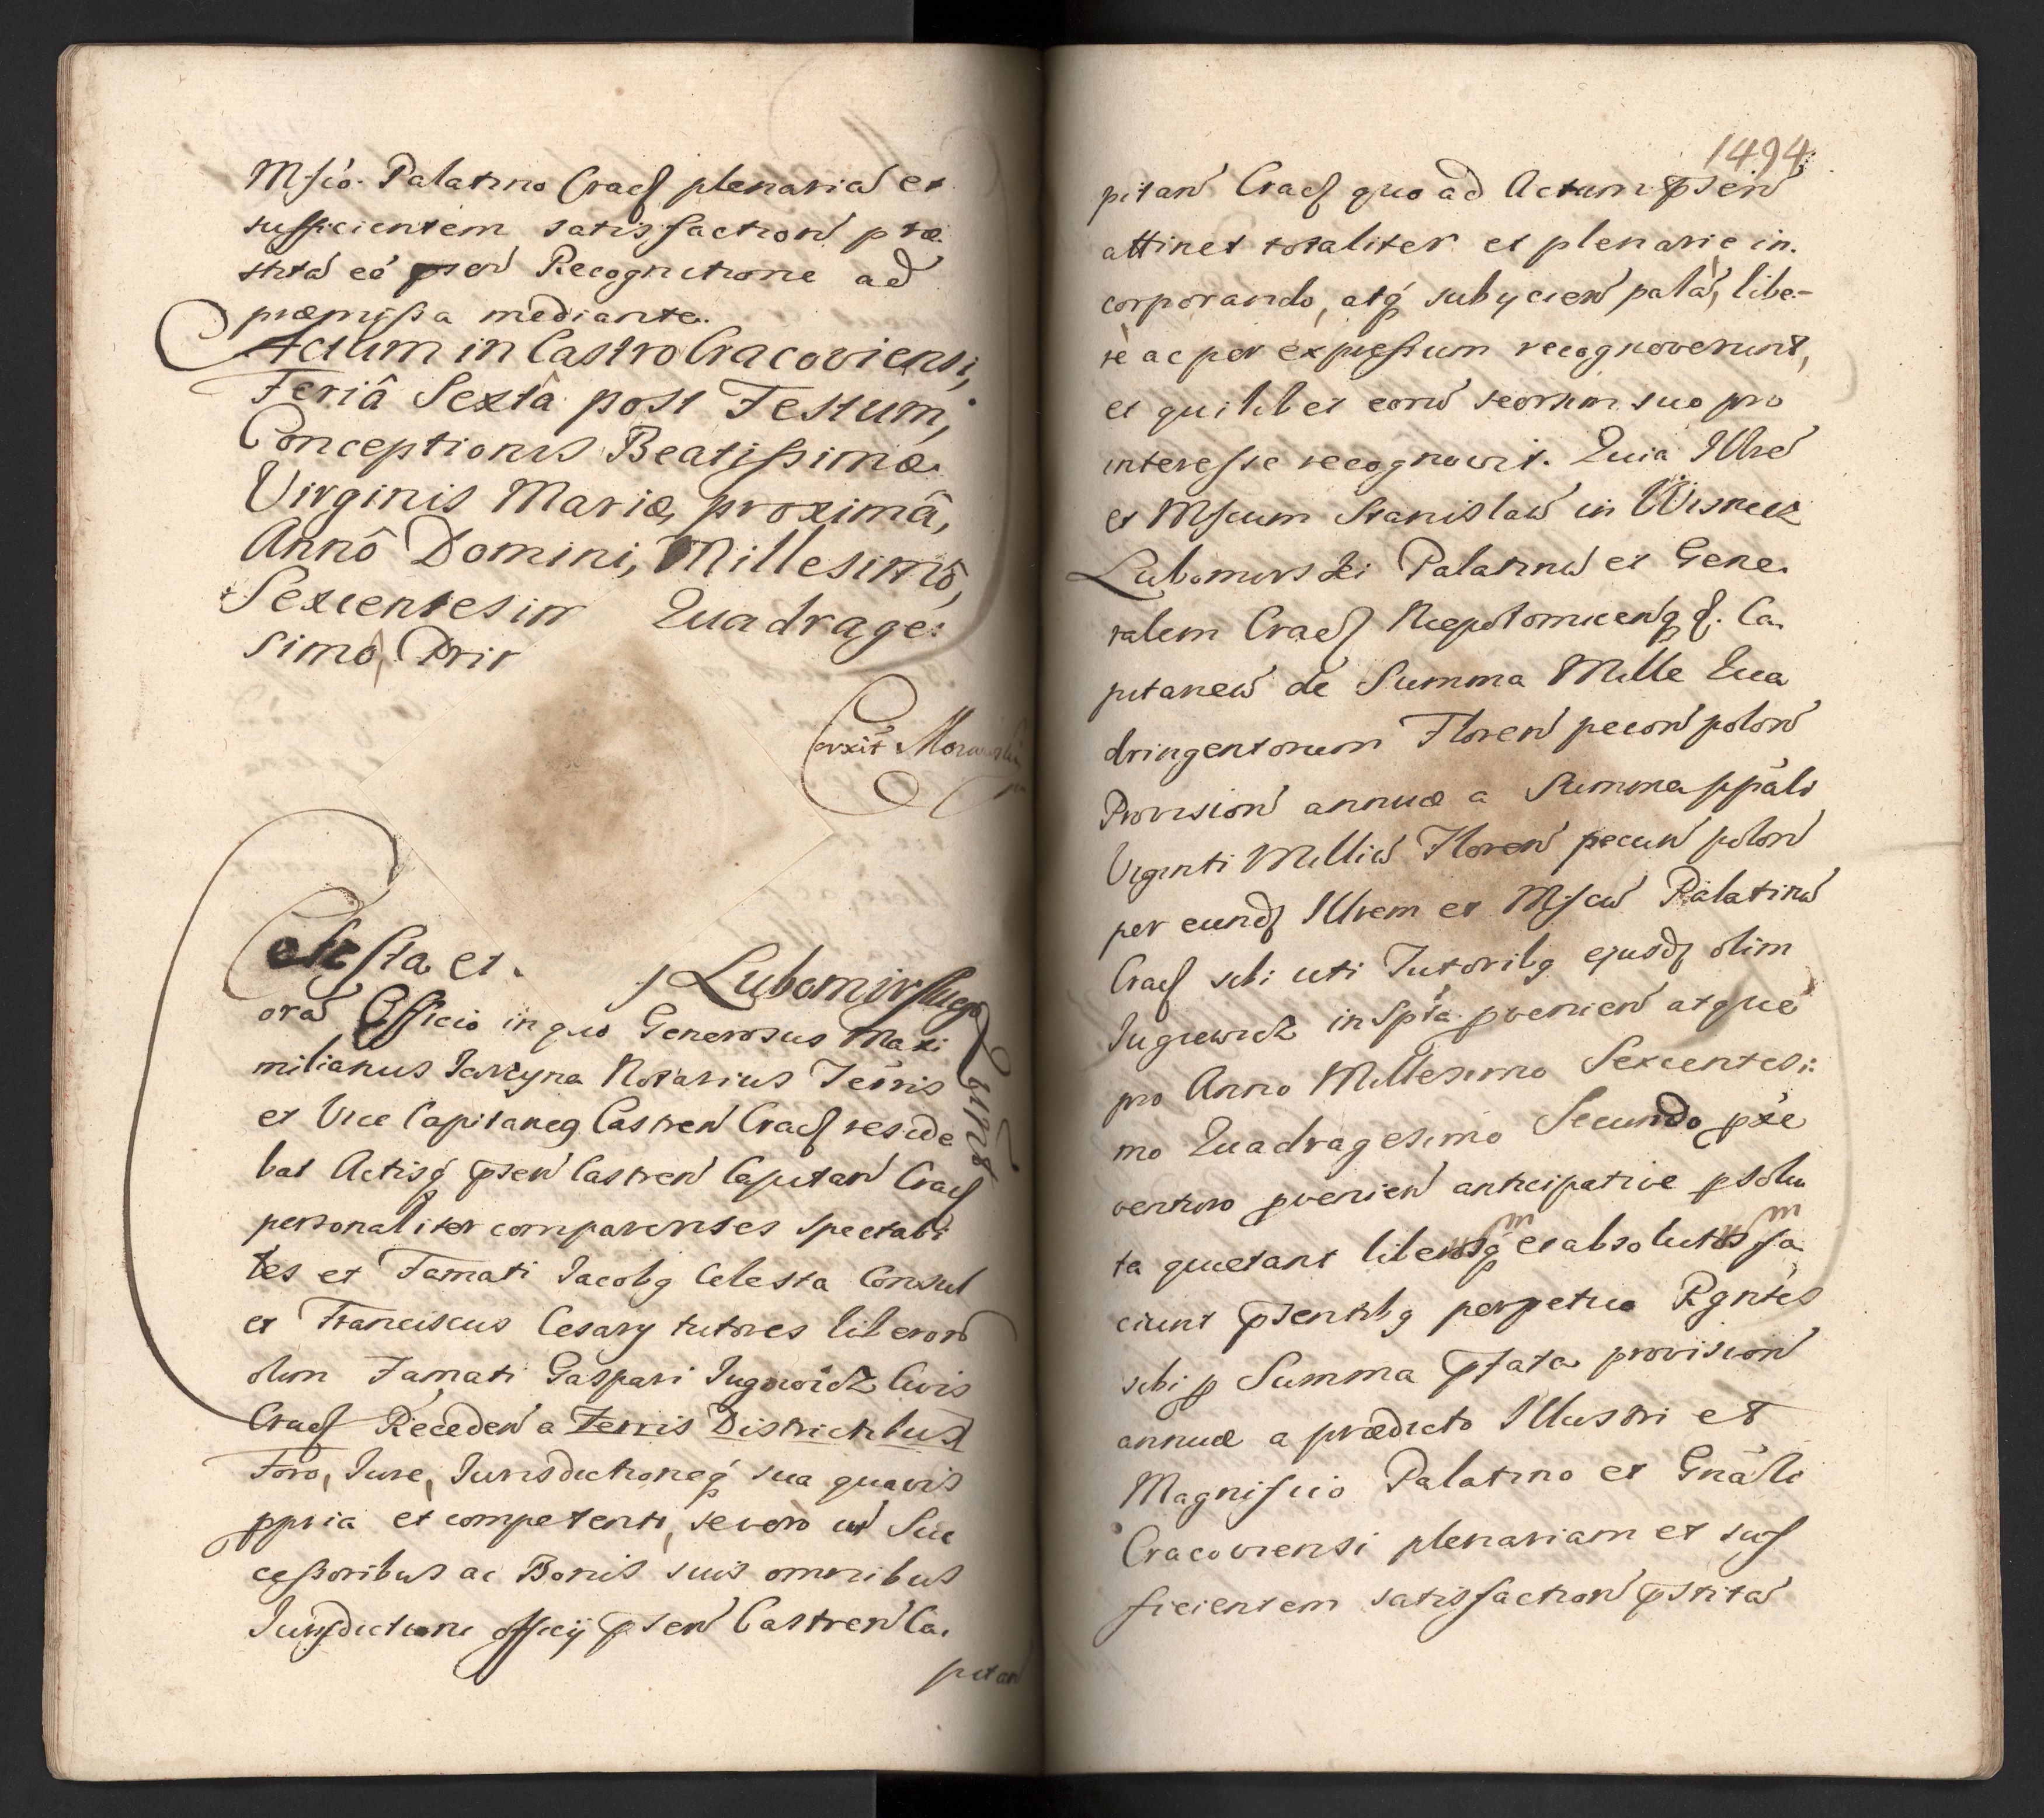 Mfico Palatino Cracß plenariam et
sufficientem satisfaction præ
stita eó Recognitione ad
præmissa mediante.
Actum in Castro Cracoviensi,
Feriâ Sextâ post Festum,
Conceptionis Beatissimæ
Virginis Mariæ, proximâ,
Annô Domini, Millesimô,
Sexcentesim Quadrage:
simô, Prir
Corxit
Celesta et
Lubomirskiego
quitt
oram Officio in quo Generosus Maxi
milianus Jarzyna Notarius Terris
et Vice Capitaneg Castren Cracß reside
bat Actisq psen Castren Capitan Cracß
personaliter comparentes spectabi
les et Famati Jacobg Celesta Consul
et Franciscus Cesary tutores liberorum
olim Famati Gaspari Jugowicz Civis
Cracß Receden a Terris Districtibus
Foro, Jure, Jurisdictioneq sua quavis
ppria et competenti, se vero cum Suc
cessoribus ac Bonis suis omnibus
Jurisdictioni officij psen Castren Ca.
pitan
1494
pitan Cracß quo ad Actum psen
attinet totaliter et plenarie in.
corporando, atq subycien palam, libe-
rè ac per expressum recognoverunt,
et quilibet eorum seorsim suo pro
interesse recognovit. Quia Illre
et Mfcum Stanislaum in Wisnicz
Lubomirski Palatinum et Gene.
ralem Cracß Niepolomicenq ß. Ca.
pitaneum de Summa Mille Qua
dringentorum Floren pecun polon
Provision annuæ a Summa ppali
Viginti Millium Floren pecun polon
per eund Illrem et Mfcum Palatinum
Cracß sibi uti Tutoribg ejusd olim
Jugiewicz inspta pvenien atque
pro Anno Millesimo Sexcentesi:
mo Quadragesimo Secundo pxe
venturo pvenien anticipative psolu
ta quietant liberosq et absolutos fa
ciunt psentibg perpetuo Rgntes
sibi p Summa pfata provision
annuæ a prædicto Illustri et
Magnifico Palatino et Gnali
Cracoviensi plenariam et suf
ficientem satisfaction pstitam